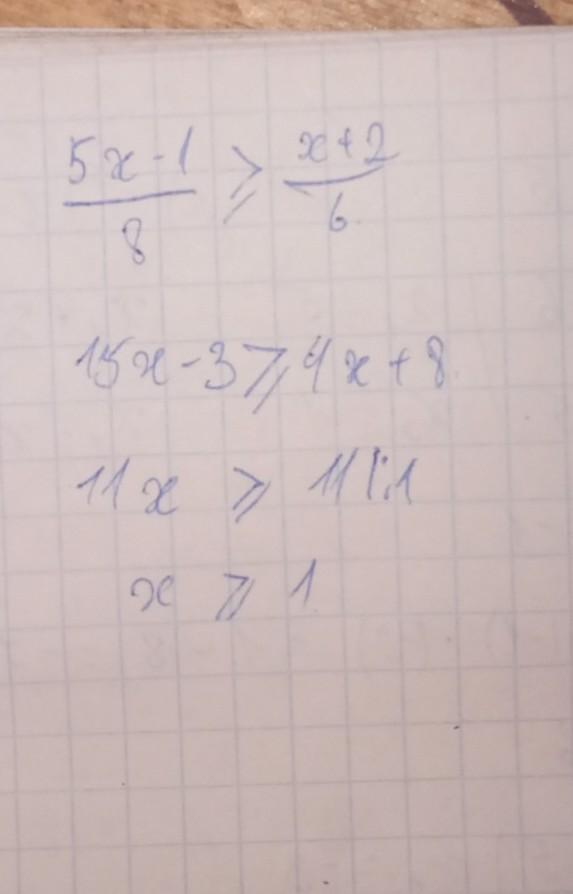 5x-1/8 ≥ x+2/6
15x-3 ≥ 4x+8
11x ≥ 11 |:1
x ≥ 1